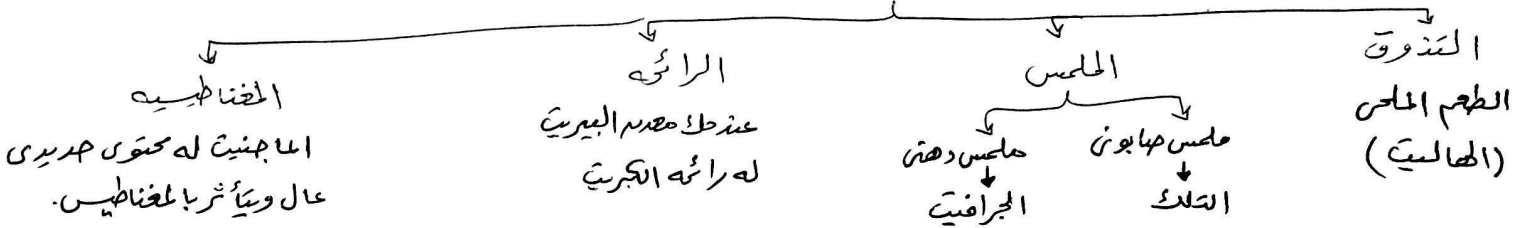 التذوق
الطعم الملحى
(الهاليت)
الملمس
ملمس صابونى
التلك
ملمس دهنى
الجرافيت
الرائحه
عند حك معدن البيريت
له رائحه الكبريت
المغناطيسيه
الماجنيت له محتوى حديدى
عال ويتأثر بالمغناطيس.